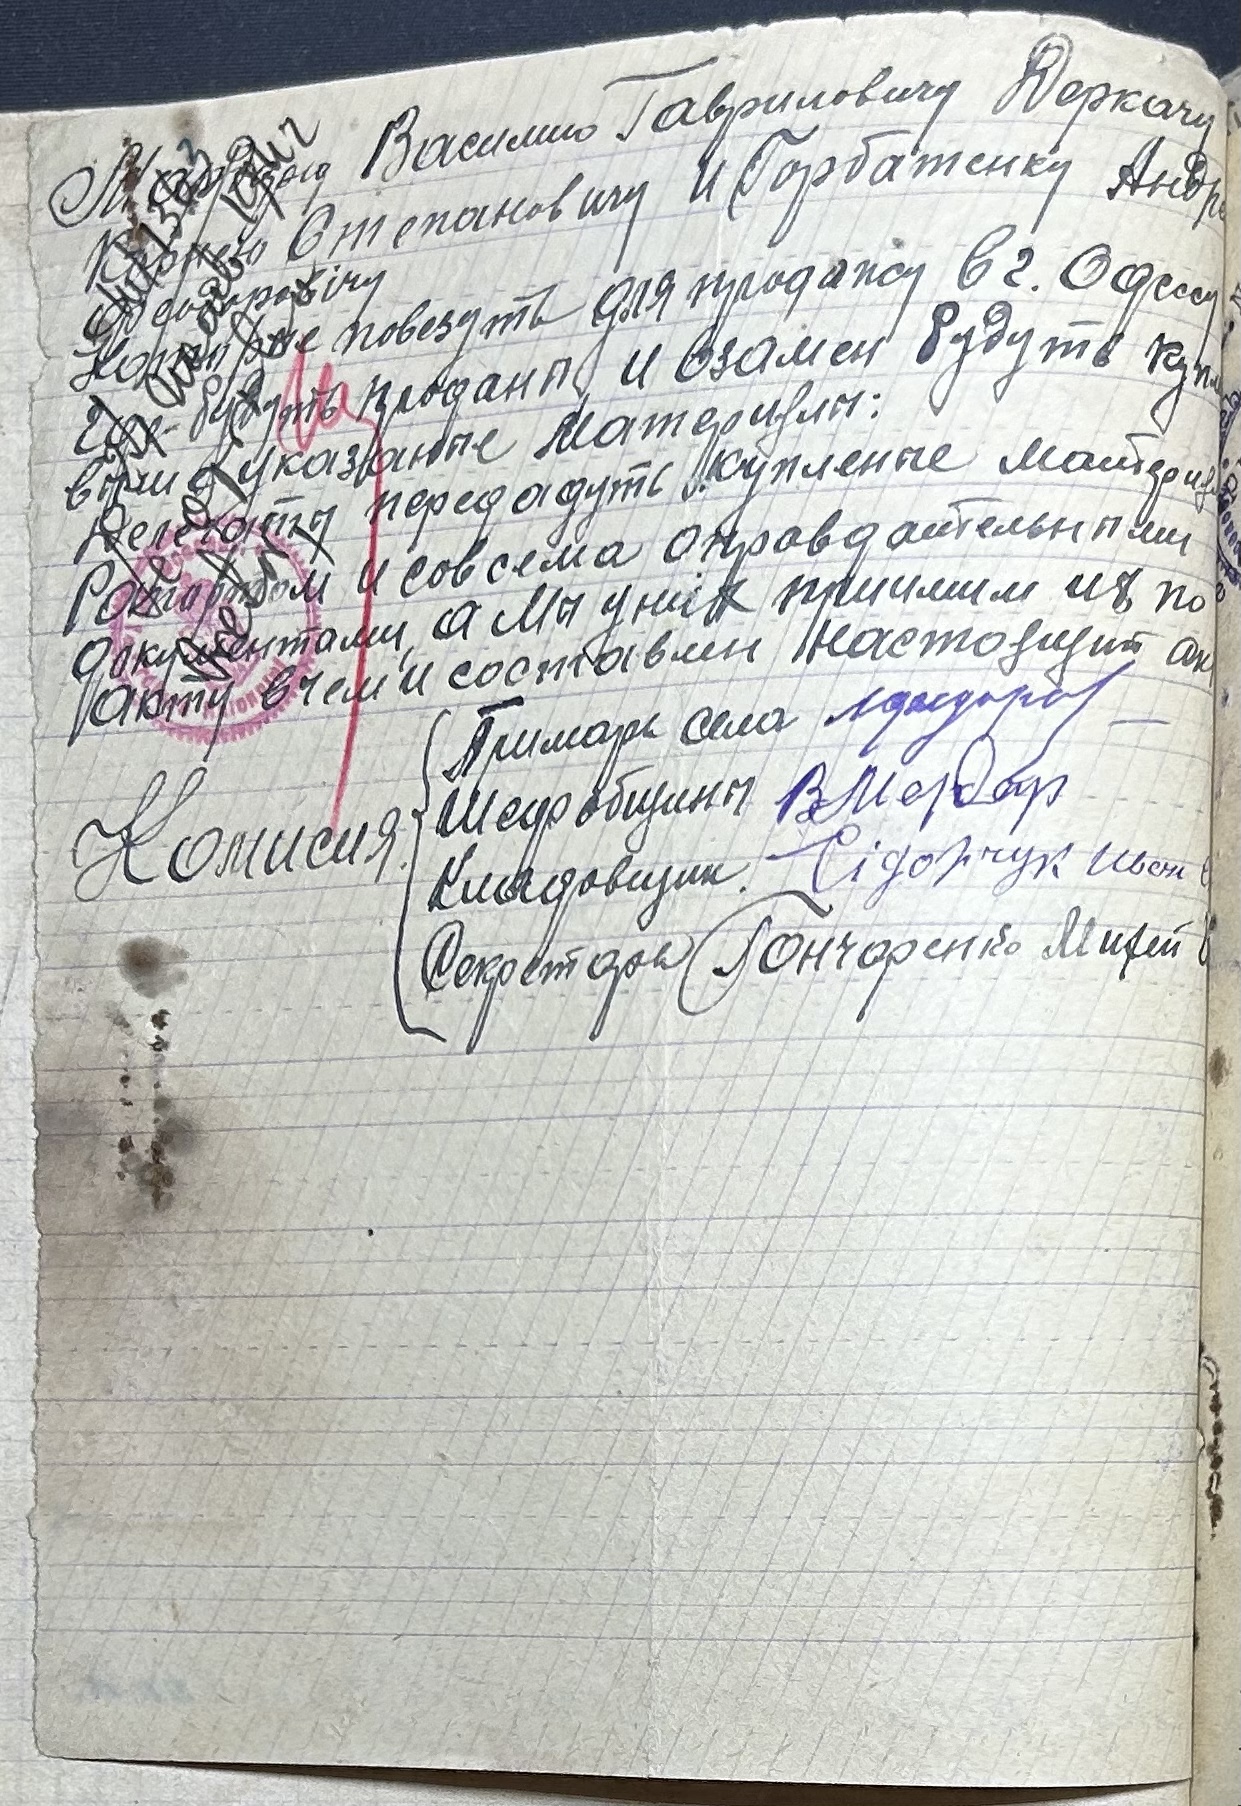 Василию Гавриловичу Деркачу
Карпею Степановичу и Горбатенку Андре
Федоровичу
Которые повезуть для продажу в г. Одессу
где будуть проданы и взамен будуть купл
выше указаные Материялы:
Делегаты передадуть купленые материя
Рапортом и совсема оправдательными
документами, а Мы у них приимим их по
акту в чем и составлен настоящий ак
Комисия
Примарь села
Шеф общины В Мербар
Кладовщик. Сідорчук Иван
Секретарь Гончаренко Михей